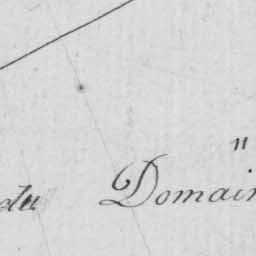 du Domain